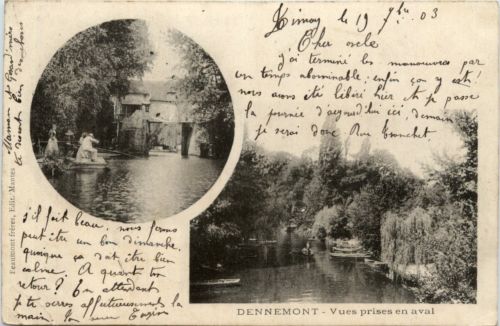 Limay le 19 7bre 03
Cher oncle
J'ai terminé les manœuvres par
un temps abominable; enfin ça y est!
nous avons été libéré hier et je passe
la journée d'aujourd'hui ici, demain
je serai donc Rue Tronchet
s'il fait beau, nous ferons
peut être un bon dimanche,
quoique ça doit être bien
calme. A quand ton
retour? En attendant
je te serre affectueusement la
main. Ton neveu Eugène
Maman et Grand'mère
te disent bien des choses
Beaumont frères, Edit. Mantes
DENNEMONT - Vues prises en aval